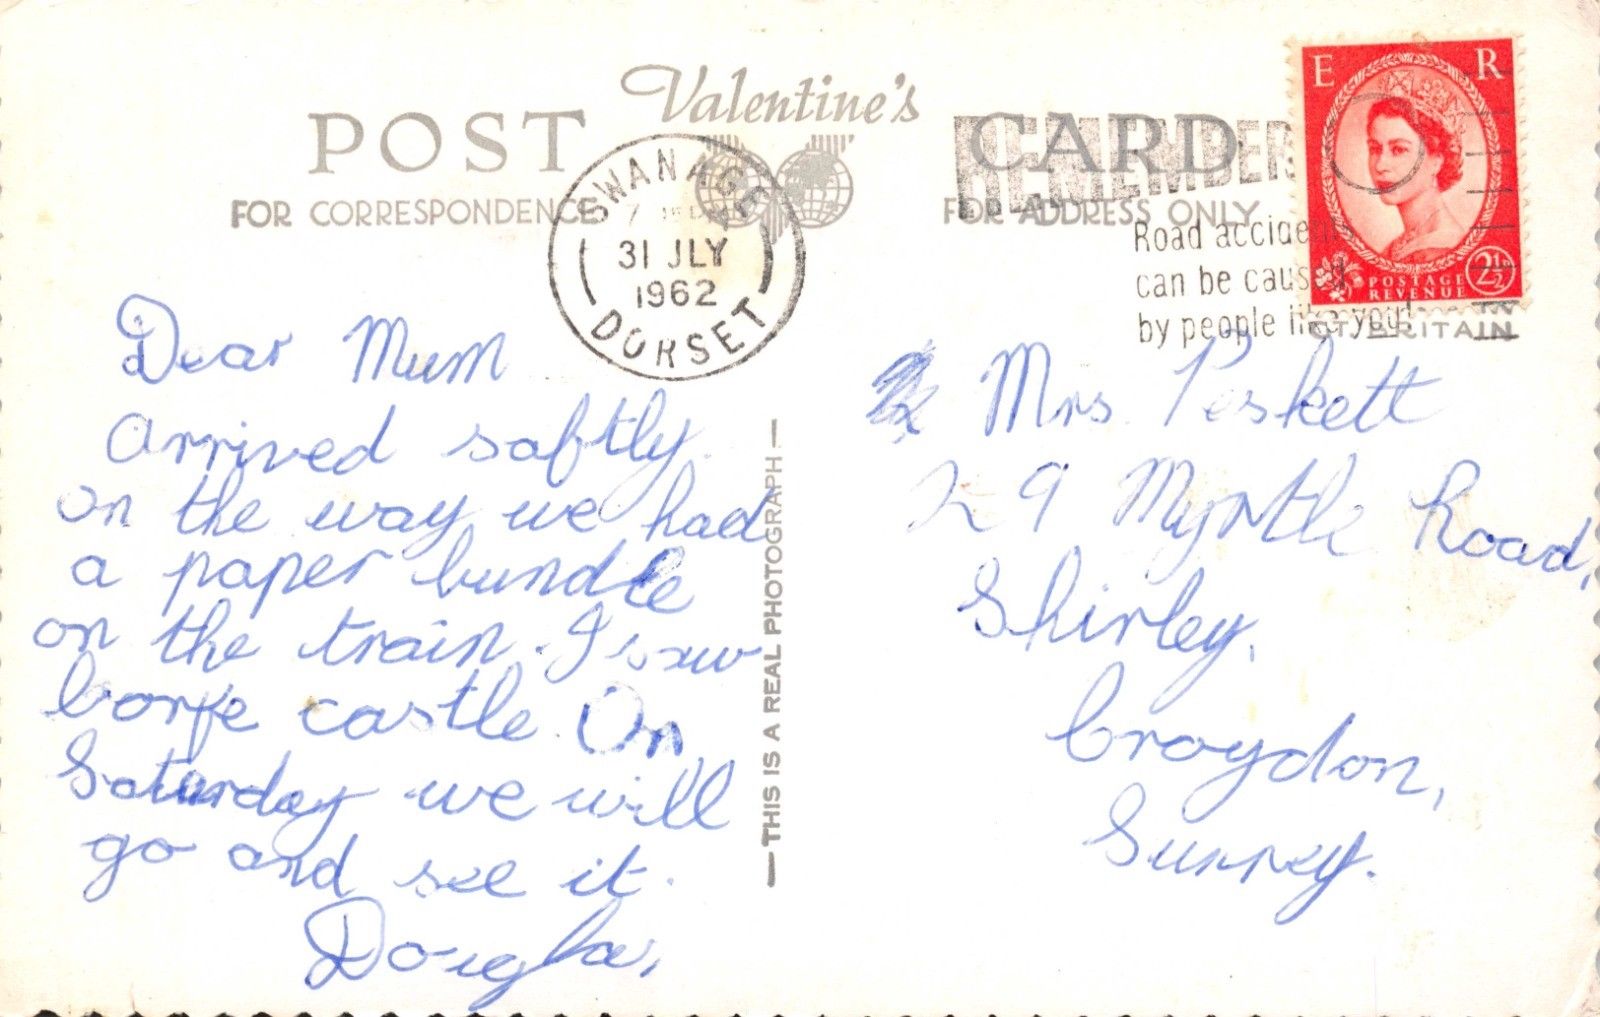 Valentine's
POST CARD
FOR CORRESPONDENCE
FOR ADDRESS ONLY
SWANAGE
31 JLY
1962
DORSET
REMEMBER
Road accidents
can be caused
by people like you!
E R
POSTAGE
REVENUE
2½
GT. BRITAIN
Dear Mum
Arrived saftly.
on the way we had
a paper bundle
on the train. I saw
corfe castle. On
Saturday we will
go and see it.
Douglas,
THIS IS A REAL PHOTOGRAPH
Mrs Peskett
29 Myrtle Road,
Shirley,
Croydon,
Surrey.